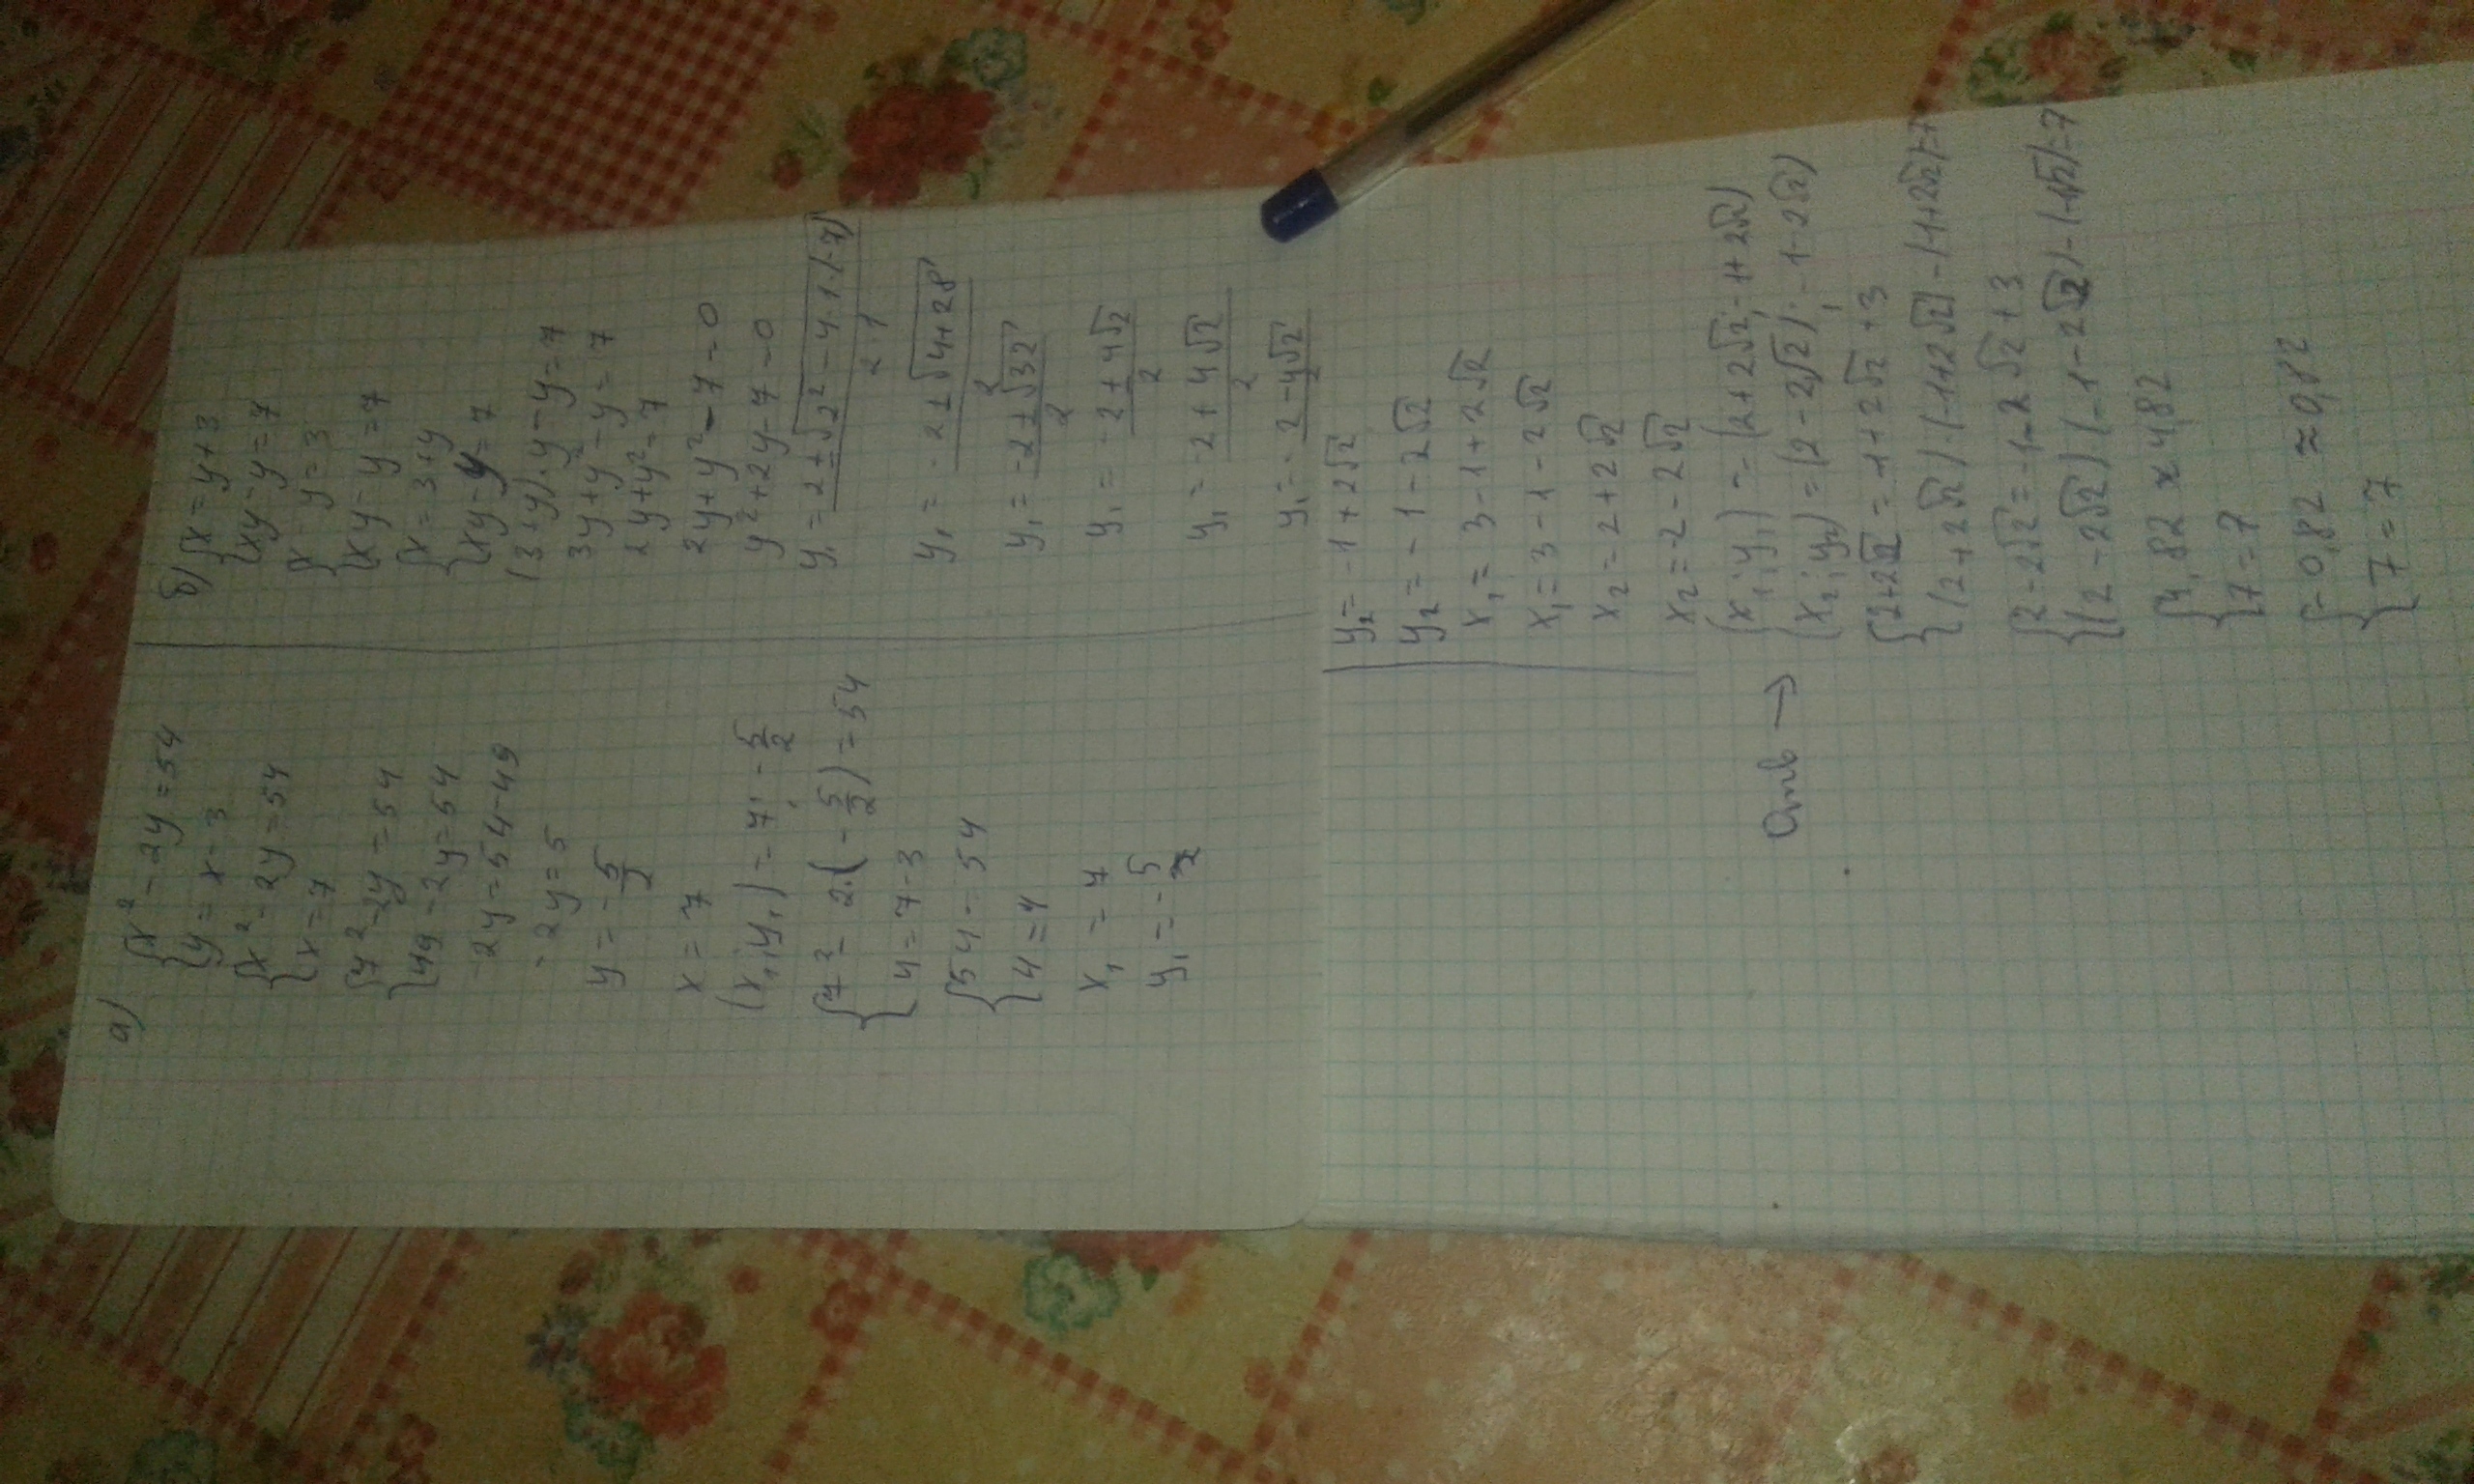 а)
{x² - 2y = 54
{y = x - 3
{x² - 2y = 54
{x = 7
{7² - 2y = 54
{49 - 2y = 54
-2y = 54-49
-2y = 5
y = -5/2
x = 7
(x₁; y₁) = 7; -5/2
{7² - 2·(-5/2) = 54
{4 = 7-3
{54 = 54
{4 = 4
x₁ = 7
y₁ = -5/2
б) {x = y+3
{xy - y = 7
{x - y = 3
{xy - y = 7
{x = 3+y
{xy - y = 7
(3+y)·y - y = 7
3y + y² - y = 7
2y + y² = 7
2y + y² - 7 = 0
y² + 2y - 7 = 0
y₁ = -2±√2² - 4·1·(-7) / 2·1
y₁ = -2±√4+28 / 2
y₁ = -2±√32 / 2
y₁ = -2±4√2 / 2
y₁ = -2+4√2 / 2
y₁ = -2-4√2 / 2
y₂ = -1+2√2
y₂ = -1-2√2
x₁ = 3-1+2√2
x₁ = 3-1-2√2
x₂ = 2+2√2
x₂ = 2-2√2
Отв →
(x₁; y₁) = (2+2√2; -1+2√2)
(x₂; y₂) = (2-2√2); -1-2√2)
{2+2√2 = -1+2√2+3
{(2+2√2)·(-1+2√2) - (-1+2√2) = 7
{2-2√2 = -1-2√2+3
{(2-2√2)·(-1-2√2) - (-1-√2) = 7
{4,82 ≈ 4,82
{7 = 7
{-0,82 ≈ 0,82
{7 = 7